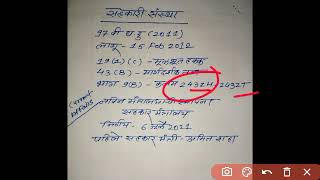 सहकारी संस्था
97 वी घ दु (2011)
लागू - 15 Feb 2012
19(1)(C) - मूलभूत हक्क
43(B) - मार्गदर्शक तत्व
भाग 9(B) - कलम 243ZH-243ZT
Current Affairs
सहकार मंत्रालय
निर्मिती - 6 जुलै 2021
पहिले सहकार मंत्री - अमित शहा